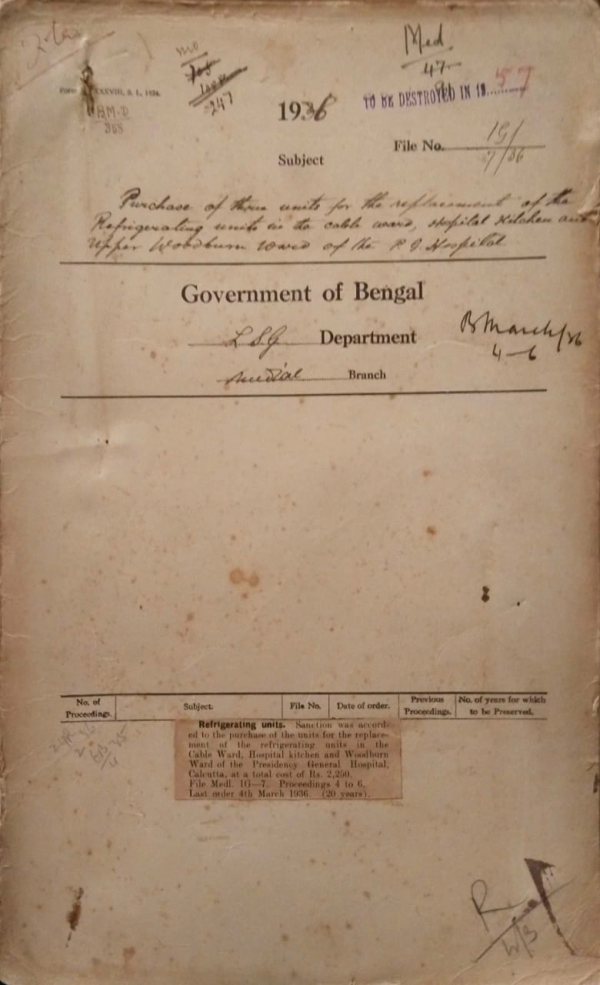 Med
47
247
TO BE DESTROYED IN 19 57
1936
Subject
File No. 1G/
7/36
Purchase of three units for the replacement of the
Refrigerating units in the cable ward, Hospital Kitchen and
Upper Woodburn ward of the P. G Hospital
Government of Bengal
L S G Department
B March/36
4-6
Medical Branch
No. of Proceedings. Subject. File No. Date of order. Previous Proceedings. No. of years for which to be Preserved.
Refrigerating units. Sanction was accord-
ed to the purchase of the units for the replace-
ment of the refrigerating units in the
Cable Ward, Hospital kitchen and Woodburn
Ward of the Presidency General Hospital,
Calcutta, at a total cost of Rs. 2,250.
File Medl. 1G—7. Proceedings 4 to 6.
Last order 4th March 1936. (20 years).
R